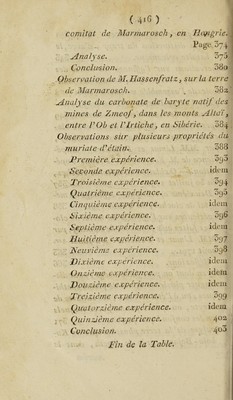 ( 416 )
comitat de Marmarosch, en Hongrie.
Page 374
Analyse. 375
Conclusion. 380
Observation de M. Hassenfratz, sur la terre
de Marmarosch. 382
Analyse du carbonate de baryte natif des
mines de Zmeof, dans les monts Altaï,
entre l'Ob et l'Irtiche, en Sibérie. 384
Observations sur plusieurs propriétés du
muriate d'étain. 388
Première expérience. 393
Seconde expérience. idem
Troisième expérience. 394
Quatrième expérience. 395
Cinquième expérience. idem
Sixième expérience. 396
Septième expérience. idem
Huitième expérience. 397
Neuvième expérience. 398
Dixième expérience. idem
Onzième expérience. idem
Douzième expérience. idem
Treizième expérience. 399
Quatorzième expérience. idem
Quinzième expérience. 402
Conclusion. 403
Fin de la Table.